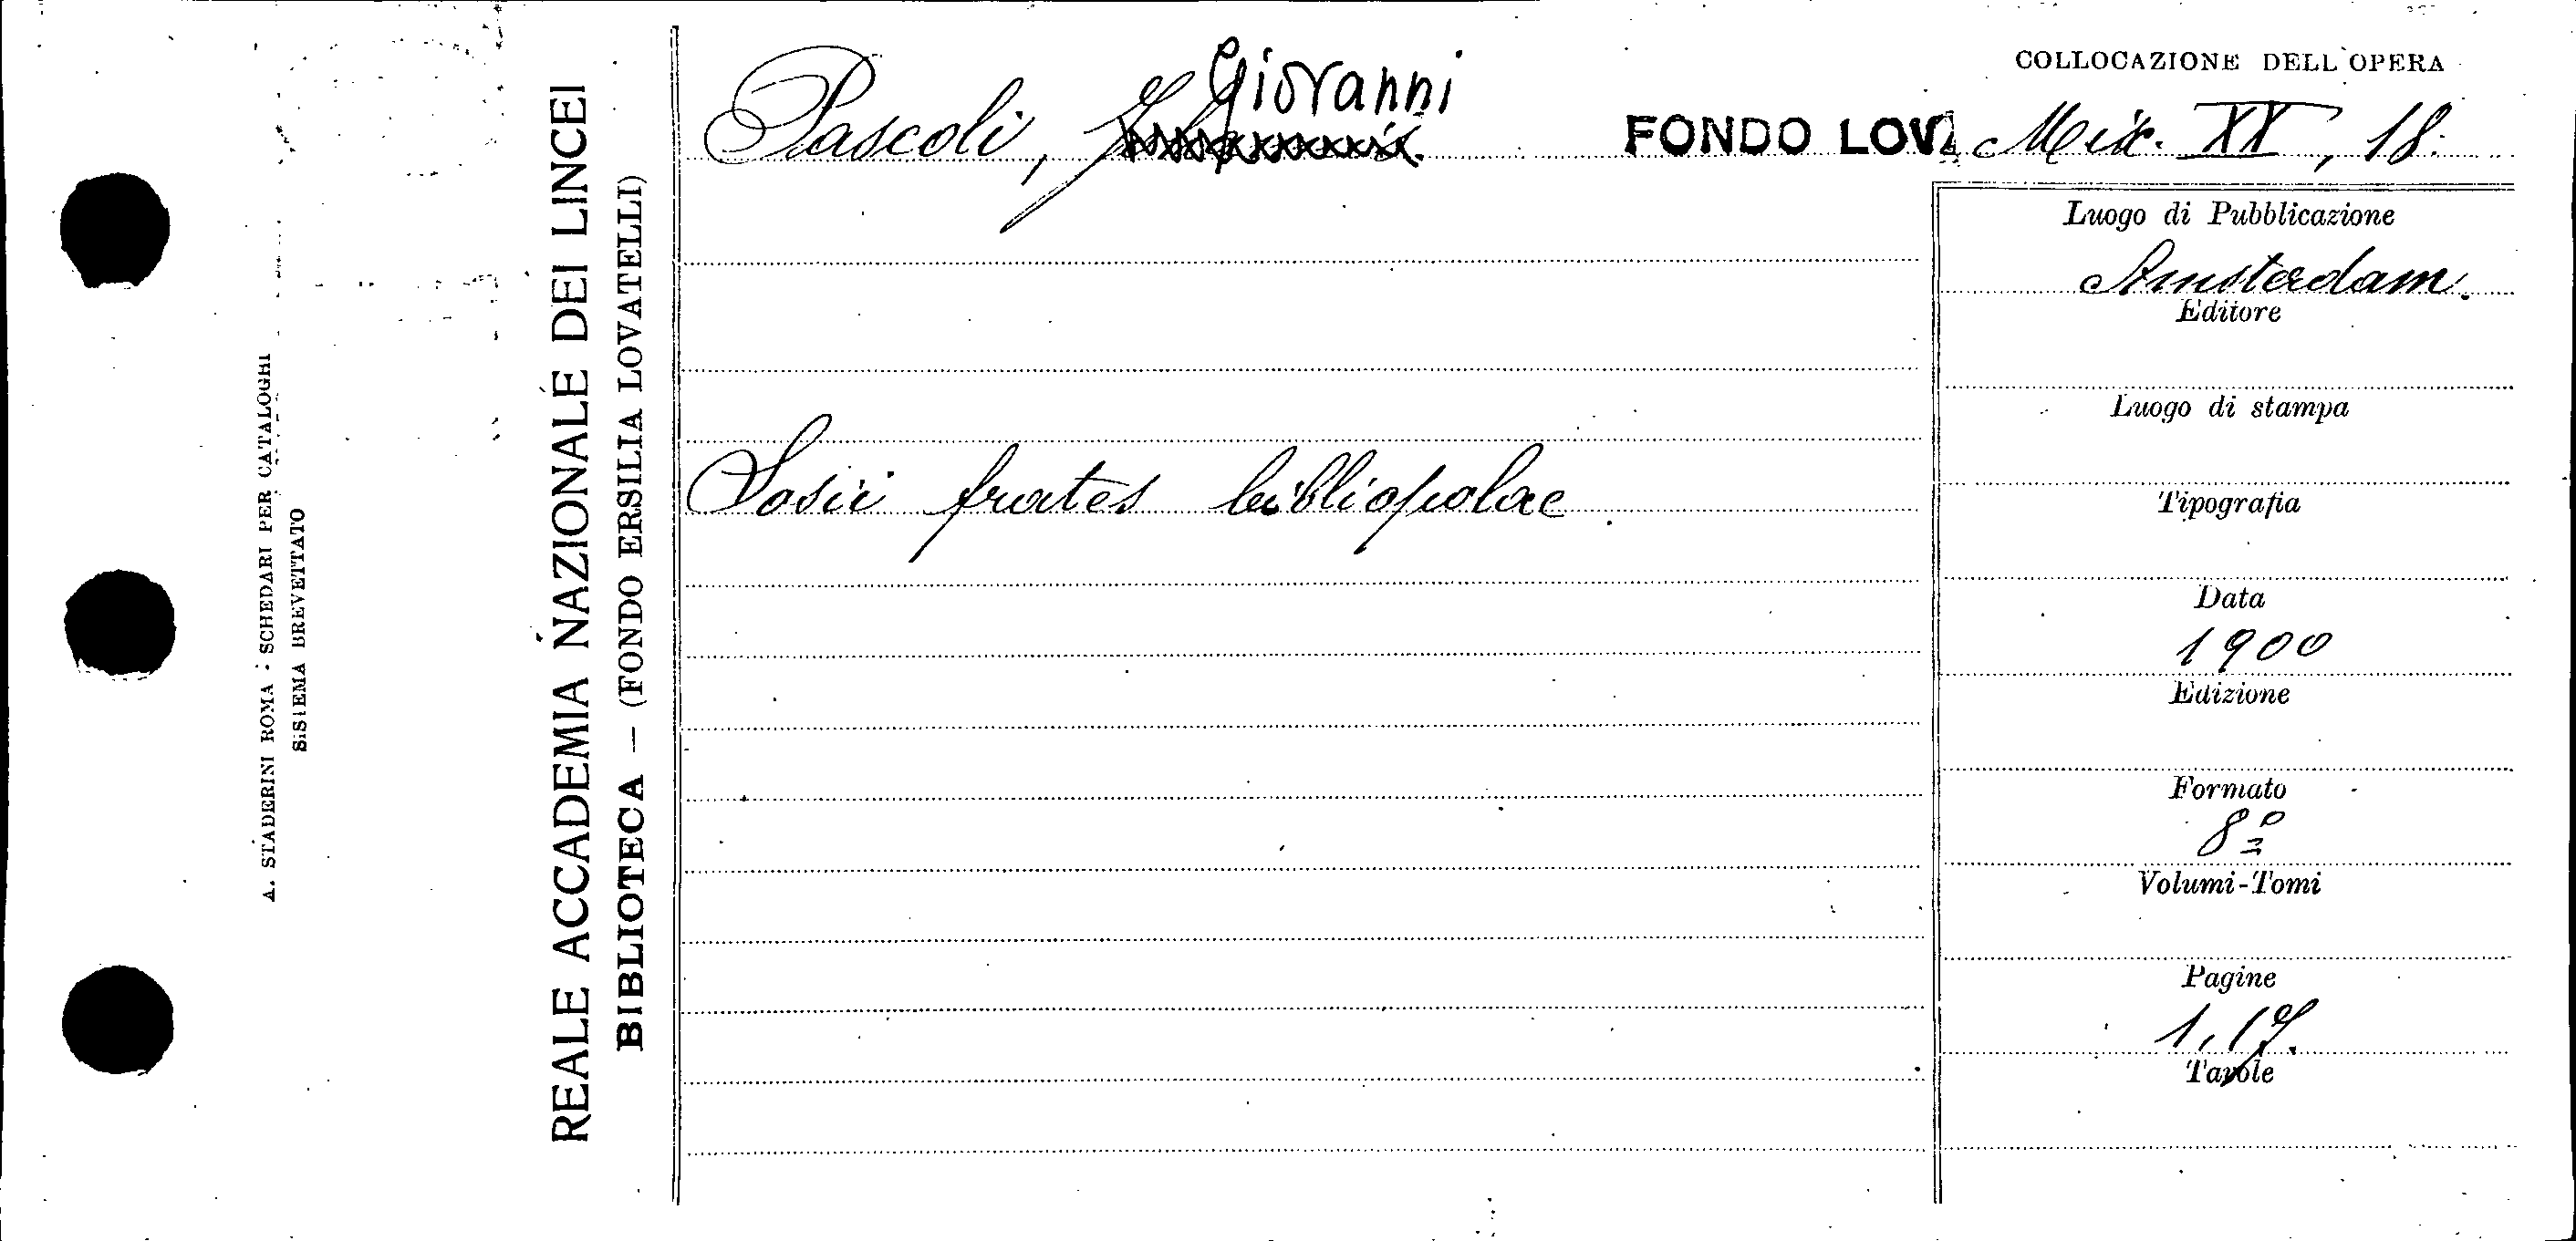 A. STADERINI ROMA - SCHEDARI PER CATALOGHI
SISTEMA BREVETTATO
REALE ACCADEMIA NAZIONALE DEI LINCEI
BIBLIOTECA — (FONDO ERSILIA LOVATELLI)
Giovanni
Pascoli,
Sosii fratres bibliopolae
COLLOCAZIONE DELL'OPERA
FONDO LOV. Mix. XX, 18.
Luogo di Pubblicazione
Amsterdam.
Editore
Luogo di stampa
Tipografia
Data
1900
Edizione
Formato
8º
Volumi-Tomi
Pagine
1,17.
Tavole